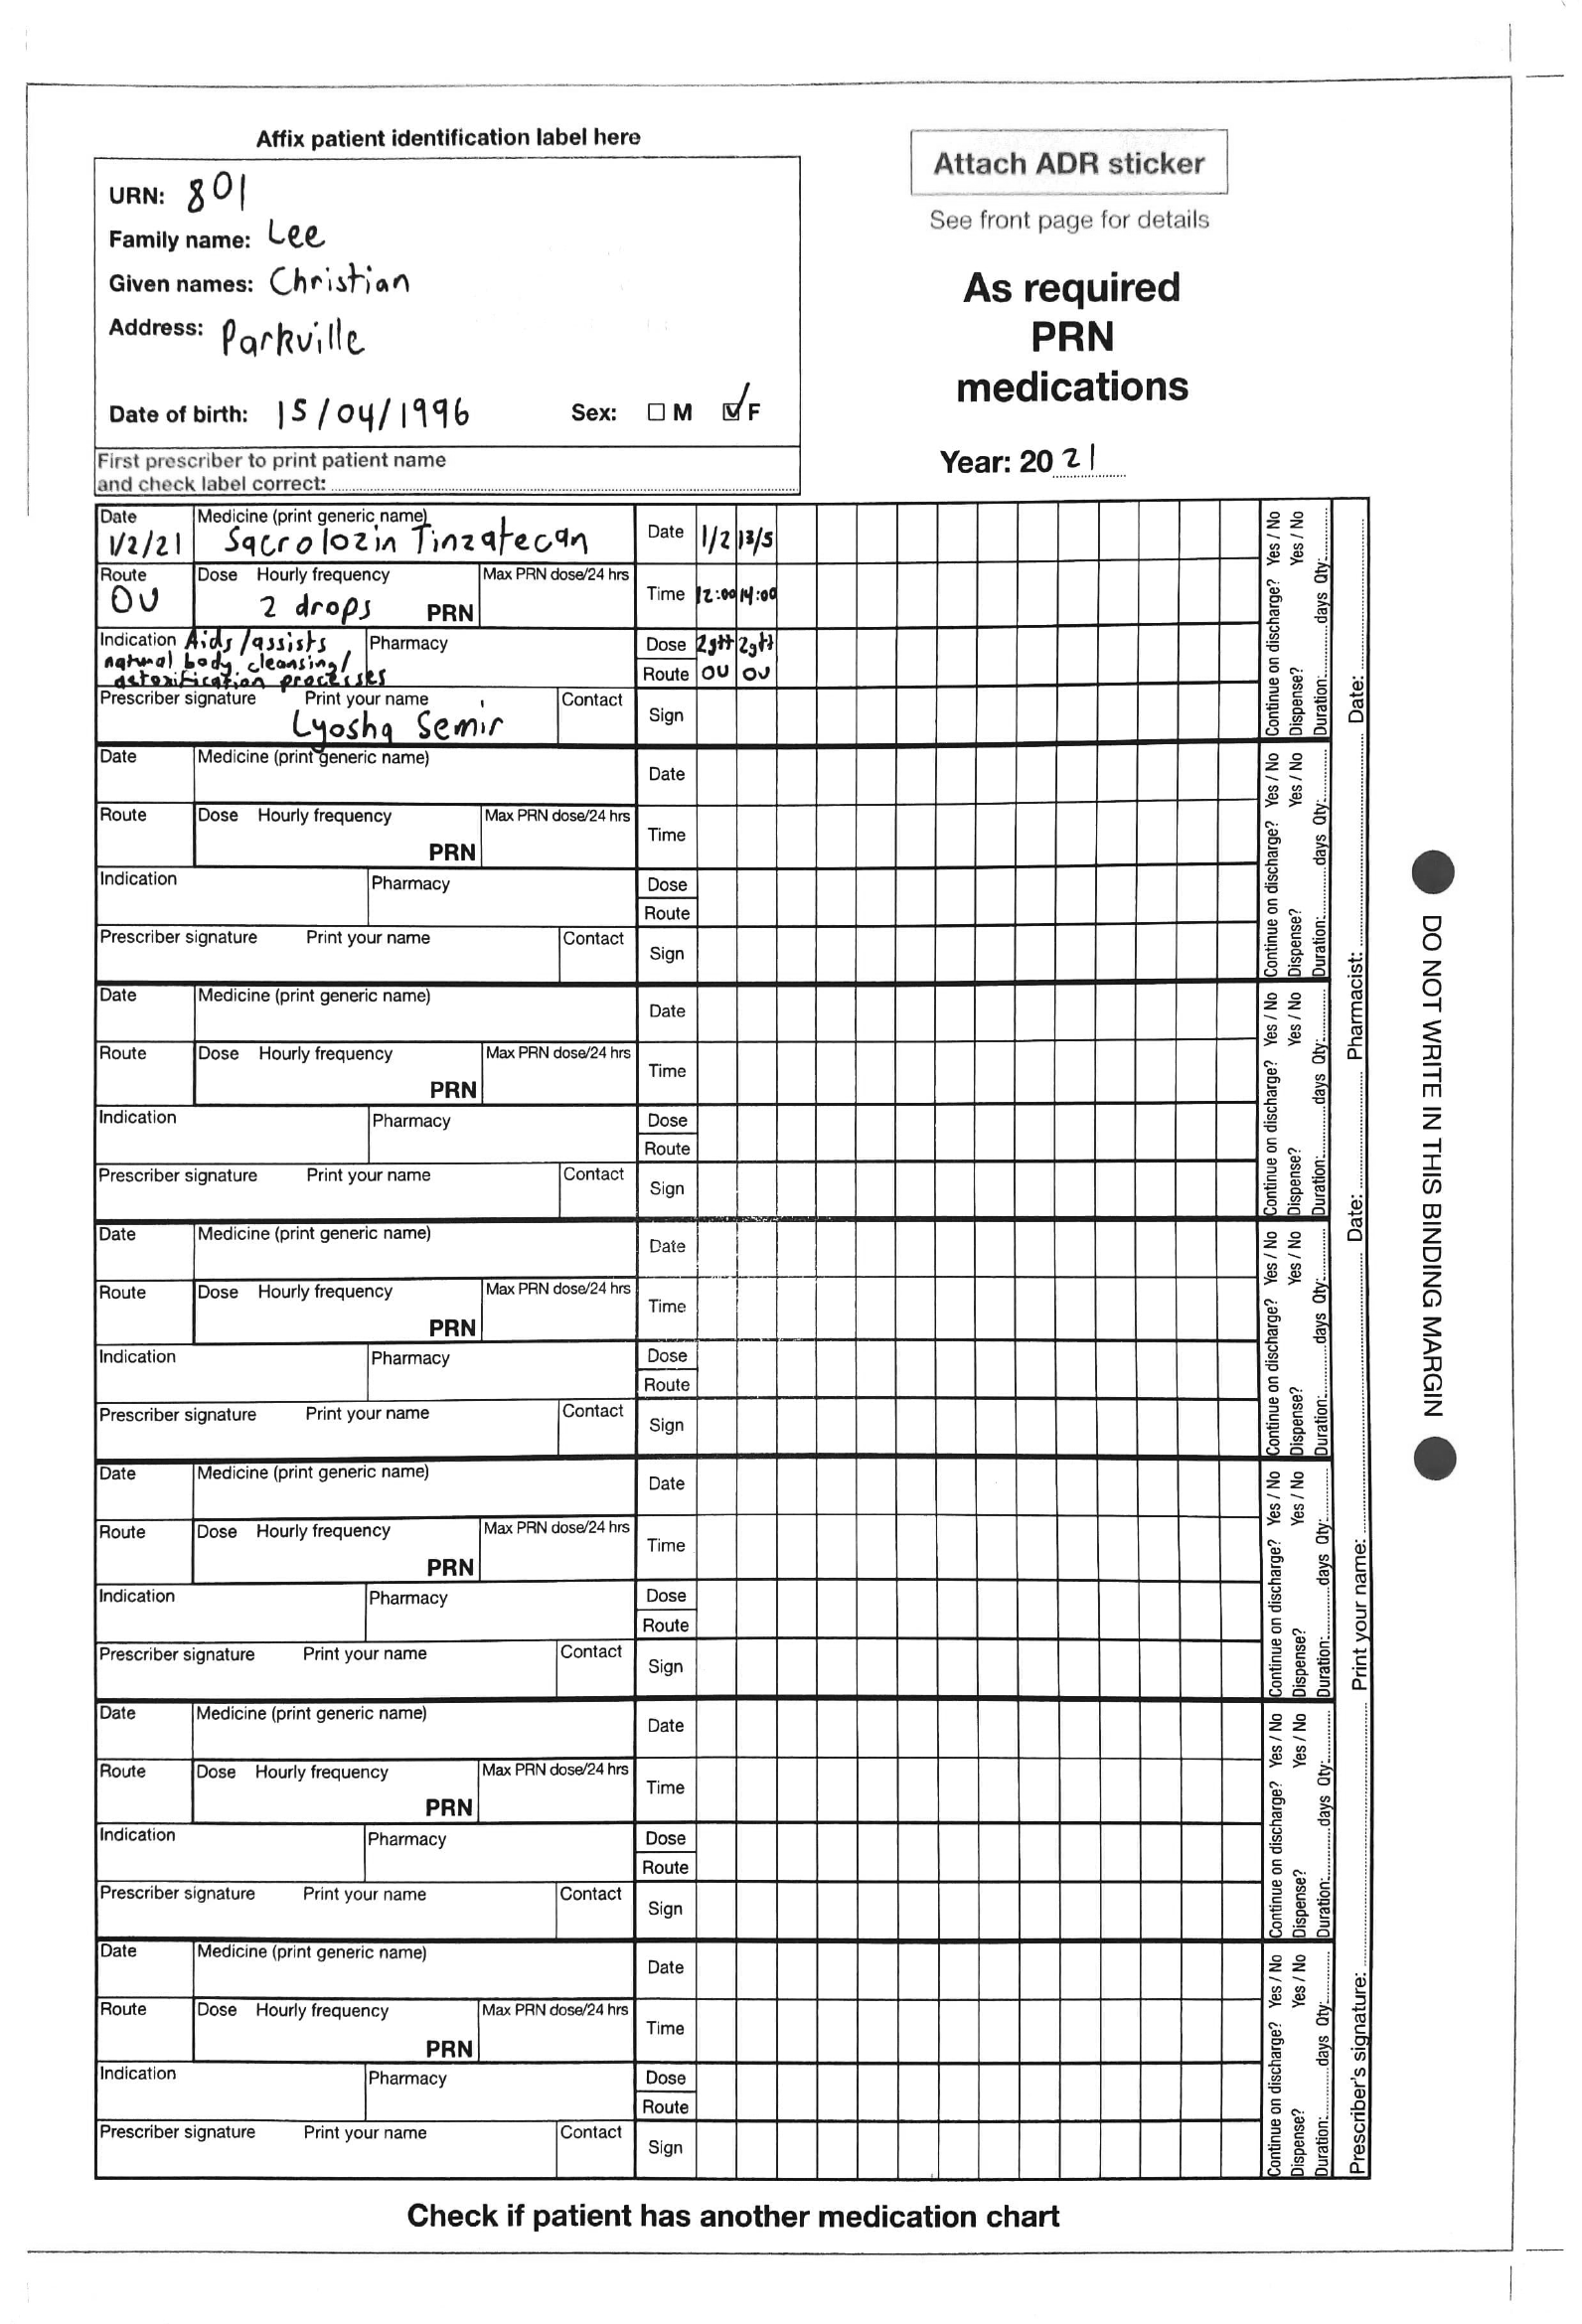 Affix patient identification label here
URN: 801
Family name: Lee
Given names: Christian
Address: Parkville
Date of birth: 15/04/1996 Sex: M F
First prescriber to print patient name
and check label correct:
Attach ADR sticker
See front page for details
As required
PRN
medications
Year: 20 21
Date Medicine (print generic name) Date 1/2 13/5
1/2/21 Sacrolozin Tinzatecan
Route Dose Hourly frequency Max PRN dose/24 hrs Time 12:00 14:00
OU 2 drops PRN
Indication Aids/assists Pharmacy Dose 2gtt 2gtt
natural body cleansing/ Route OU OU
detoxification processes
Prescriber signature Print your name Contact Sign
Lyosha Semir
Continue on discharge? Yes / No
Dispense? Yes / No
Duration: days Qty:
Date Medicine (print generic name) Date
Route Dose Hourly frequency Max PRN dose/24 hrs Time
PRN
Indication Pharmacy Dose
Route
Prescriber signature Print your name Contact Sign
Continue on discharge? Yes / No
Dispense? Yes / No
Duration: days Qty:
Date Medicine (print generic name) Date
Route Dose Hourly frequency Max PRN dose/24 hrs Time
PRN
Indication Pharmacy Dose
Route
Prescriber signature Print your name Contact Sign
Continue on discharge? Yes / No
Dispense? Yes / No
Duration: days Qty:
Date Medicine (print generic name) Date
Route Dose Hourly frequency Max PRN dose/24 hrs Time
PRN
Indication Pharmacy Dose
Route
Prescriber signature Print your name Contact Sign
Continue on discharge? Yes / No
Dispense? Yes / No
Duration: days Qty:
Date Medicine (print generic name) Date
Route Dose Hourly frequency Max PRN dose/24 hrs Time
PRN
Indication Pharmacy Dose
Route
Prescriber signature Print your name Contact Sign
Continue on discharge? Yes / No
Dispense? Yes / No
Duration: days Qty:
Date Medicine (print generic name) Date
Route Dose Hourly frequency Max PRN dose/24 hrs Time
PRN
Indication Pharmacy Dose
Route
Prescriber signature Print your name Contact Sign
Continue on discharge? Yes / No
Dispense? Yes / No
Duration: days Qty:
Date Medicine (print generic name) Date
Route Dose Hourly frequency Max PRN dose/24 hrs Time
PRN
Indication Pharmacy Dose
Route
Prescriber signature Print your name Contact Sign
Continue on discharge? Yes / No
Dispense? Yes / No
Duration: days Qty:
Prescriber's signature: Print your name: Date: Pharmacist: Date:
DO NOT WRITE IN THIS BINDING MARGIN
Check if patient has another medication chart